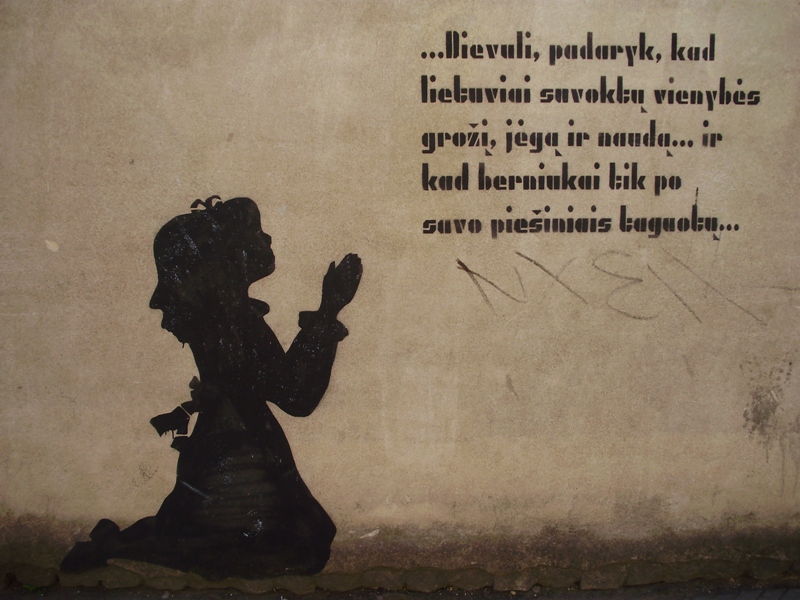 ...Dievuli, padaryk, kad
lietuviai suvoktų vienybės
grožį, jėgą ir naudą... ir
kad berniukai tik po
savo piešiniais taguotų...